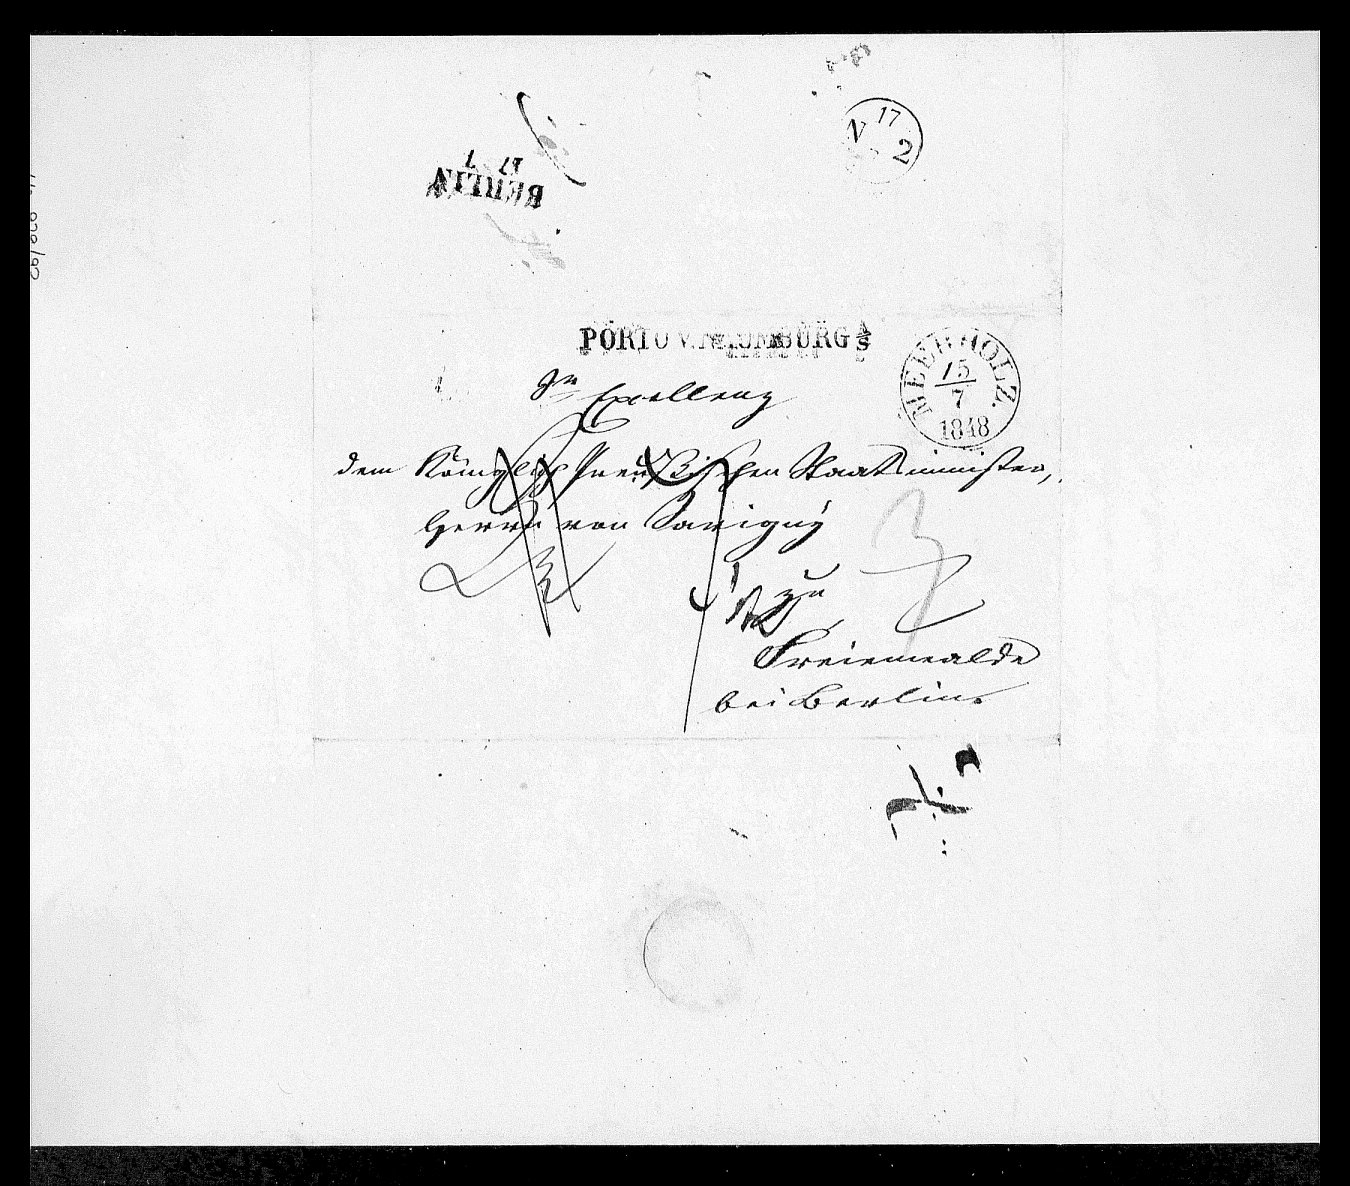 17
N 2
BERLIN
17 7
PORTO V. NAUMBURG A/S
MEERHOLZ.
15
7
1848
Sr Excellenz
dem Königlich Preußischen Staatsminister,
Herrn von Savigny
zu
Freienwalde
bei Berlin.
3